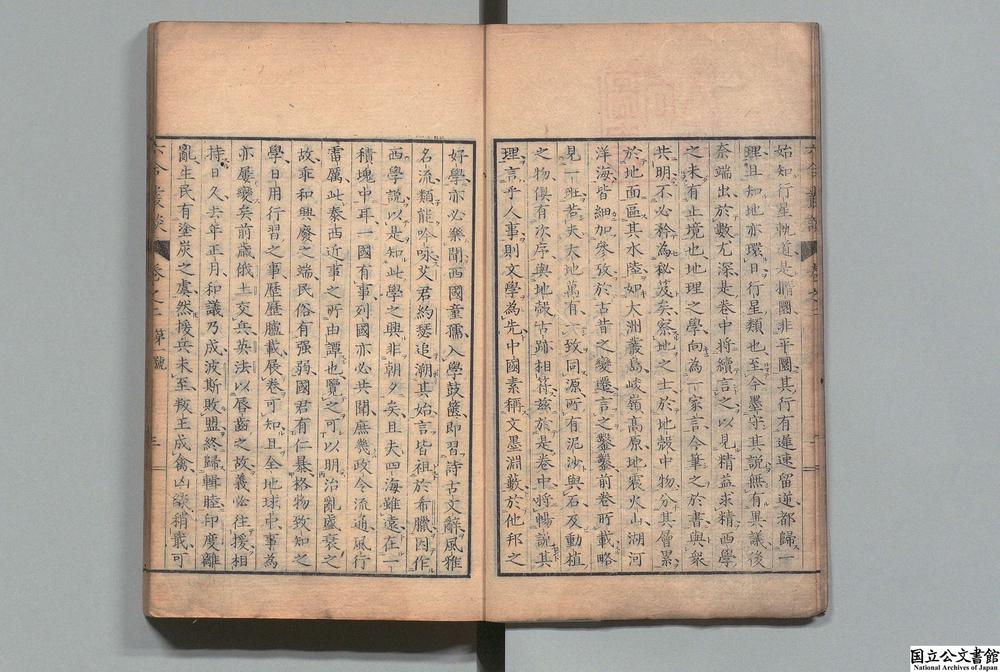 始知行星軌道是撱圜非平圜其行有遲速留逆都歸一
理且知地亦環日行星類也至今墨守其說無有異議後
奈端出於數尤深是卷中將續言之以見精益求精西學
之未有止境也地理之學向為一家言今筆之於書與衆
共明不必矜為秘笈矣察地之士於地殼中物分其層累
於地面區其水陸如大洲叢島峻嶺高原地震火山湖河
洋海皆細加參攷於古昔之變遷言之鑿鑿前卷所載略
見一斑若夫大地萬有一致同源所有泥沙與石及動植
之物俱有次序與地殼古跡相符茲於是卷中將暢說其
理言乎人事則文學為先中國素稱文墨淵藪於他邦之
好學亦必樂聞西國童孺入學鼓篋即習詩古文辭風雅
名流類能吟咏艾君約瑟追溯其始言皆祖於希臘因作
西學說以是知此學之興非朝夕矣且夫四海雖遠在一
積塊中耳一國有事列國亦必共聞庶幾政令流通風行
雷厲此泰西近事之所由譚也覽之可以明治亂盛衰之
故乖和興廢之端民俗有强弱國君有仁暴格物致知之
學日用行習之事歷歷臚載展卷可知且全地球中事為
亦屢變矣前歲俄土交兵英法以唇齒之故義必往援相
持日久去年正月和議乃成波斯敗盟終歸輯睦印度離
亂生民有塗炭之虞然援兵未至叛王成禽凶燄稍戢可
六合叢談 卷之二 第號 三
国立公文書館
National Archives of Japan